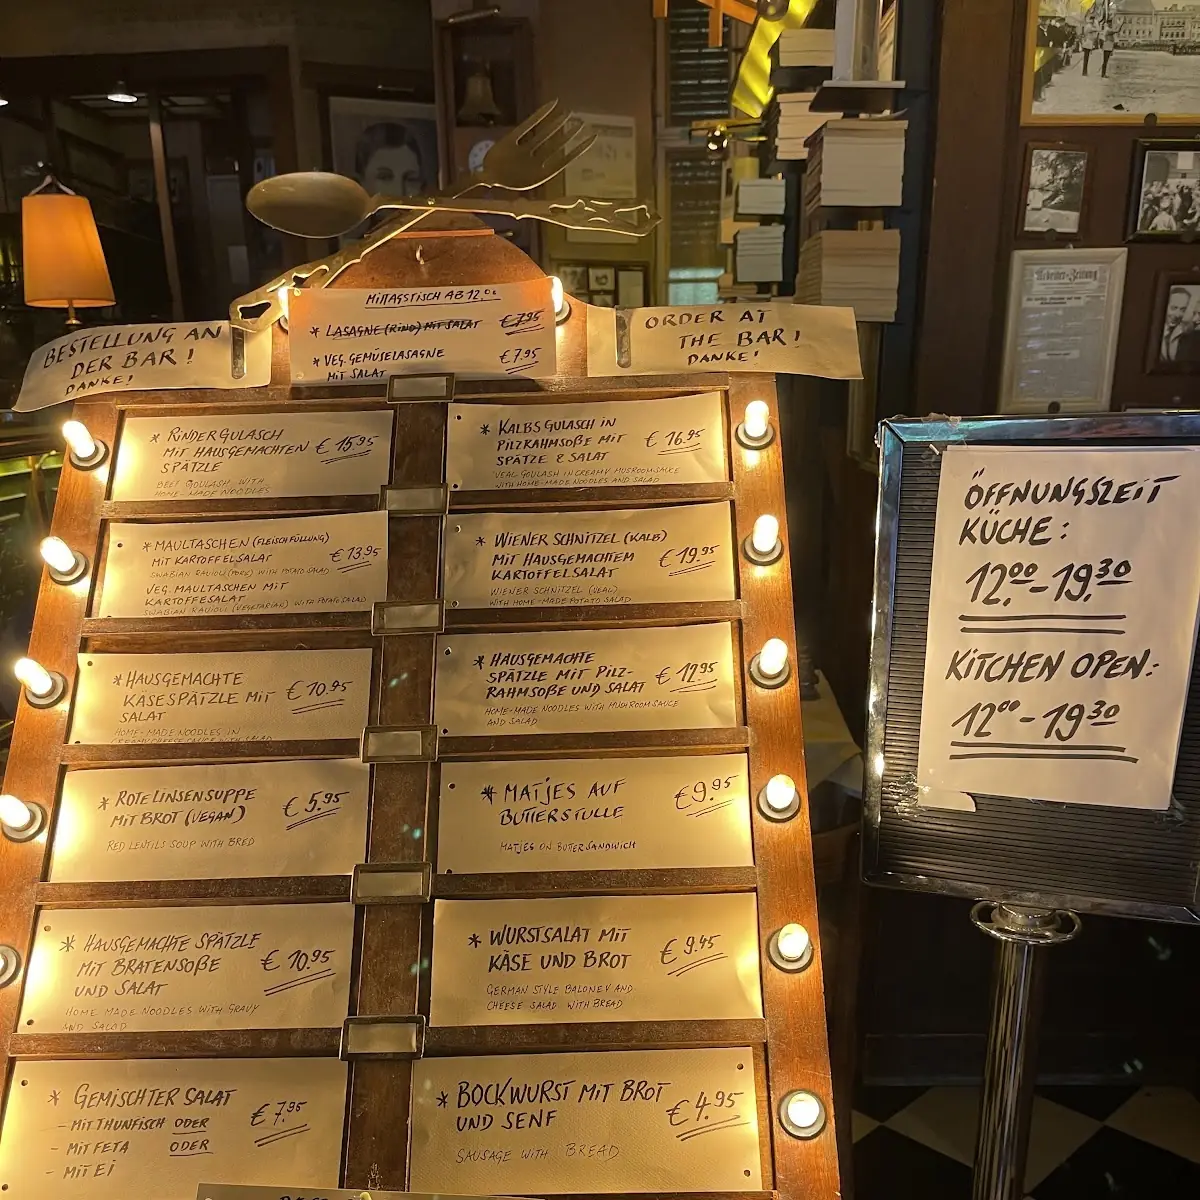 MITTAGSTISCH AB 12.00
* LASAGNE (RIND) MIT SALAT € 7.95
* VEG. GEMÜSELASAGNE € 7.95
MIT SALAT
BESTELLUNG AN
DER BAR!
DANKE!
ORDER AT
THE BAR!
DANKE!
* RINDERGULASCH
MIT HAUSGEMACHTEN € 15.95
SPÄTZLE
BEEF GOULASH WITH
HOME-MADE NOODLES
* KALBSGULASCH IN
PILZRAHMSOßE MIT € 16.95
SPÄTZLE & SALAT
VEAL GOULASH IN CREAMY MUSROOMSAUCE
WITH HOME-MADE NOODLES AND SALAD
* MAULTASCHEN (FLEISCHFÜLLUNG)
MIT KARTOFFELSALAT € 13.95
SWABIAN RAVIOLI (PORK) WITH POTATO SALAD
VEG. MAULTASCHEN MIT
KARTOFFESALAT
SWABIAN RAVIOLI (VEGETARIAN) WITH POTATO SALAD
* WIENER SCHNITZEL (KALB)
MIT HAUSGEMACHTEM € 19.95
KARTOFFELSALAT
WIENER SCHNITZEL (VEAL)
WITH HOME-MADE POTATO SALAD
* HAUSGEMACHTE
KÄSESPÄTZLE MIT € 10.95
SALAT
HOME-MADE NOODLES IN
CREAMY CHEESE SAUCE WITH SALAD
* HAUSGEMACHTE
SPÄTZLE MIT PILZ-
RAHMSOßE UND SALAT € 12.95
HOME-MADE NOODLES WITH MUSHROOMSAUCE
AND SALAD
* ROTE LINSENSUPPE
MIT BROT (VEGAN) € 5.95
RED LENTILS SOUP WITH BRED
* MATJES AUF
BUTTERSTULLE € 9.95
MATJES ON BUTTERSANDWICH
* HAUSGEMACHTE SPÄTZLE
MIT BRATENSOßE € 10.95
UND SALAT
HOME MADE NOODLES WITH GRAVY
AND SALAD
* WURSTSALAT MIT
KÄSE UND BROT € 9.45
GERMAN STYLE BALONEY AND
CHEESE SALAD WITH BREAD
* GEMISCHTER SALAT
- MIT THUNFISCH ODER € 7.95
- MIT FETA ODER
- MIT EI
* BOCKWURST MIT BROT
UND SENF € 4.95
SAUSAGE WITH BREAD
ÖFFNUNGSZEIT
KÜCHE:
12.00-19.30
KITCHEN OPEN:
12 00 - 19 30
Arbeiter-Zeitung